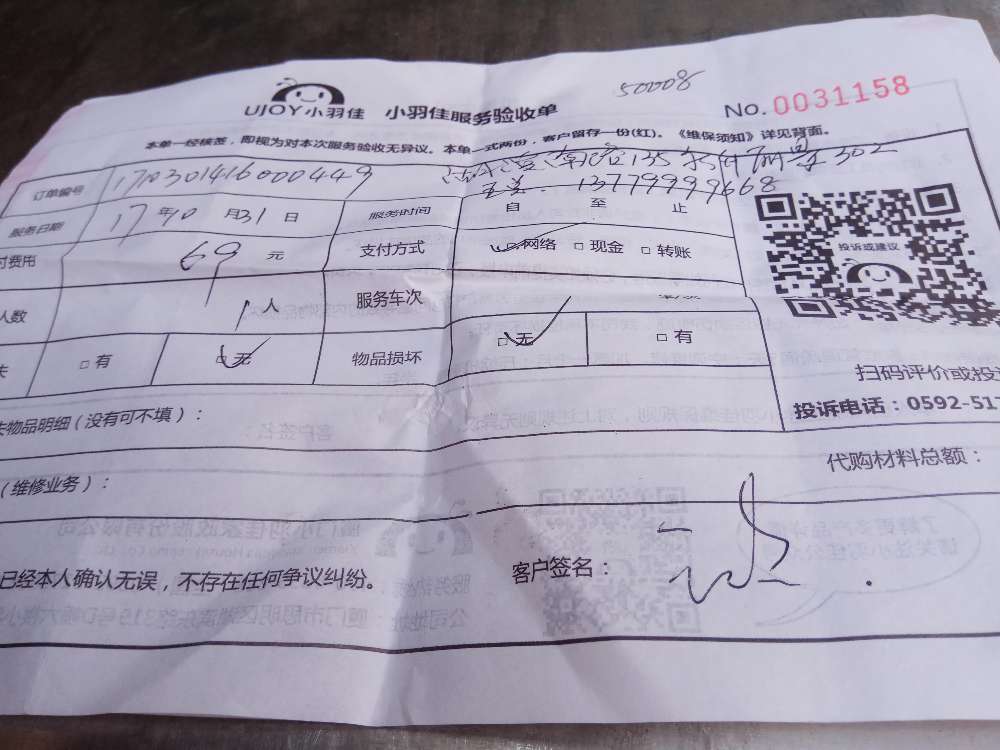 50008
UJOY小羽佳 小羽佳服务验收单 No. 0031158
本单一经核签,即视为对本次服务验收无异议。本单一式两份,客户留存一份(红)。《维保须知》详见背面。
订单编号 1710301416000449 135 302
13779999668
服务日期 17年10月31日 服务时间 自 至 止
付费用 69 元 支付方式 □网络 □现金 □转账
人数 1人 服务车次
失 □有 □无 物品损坏 □无 □有
投诉或建议
扫码评价或投
投诉电话:0592-517
失物品明细(没有可不填):
代购材料总额:
(维修业务):
已经本人确认无误,不存在任何争议纠纷。 客户签名: